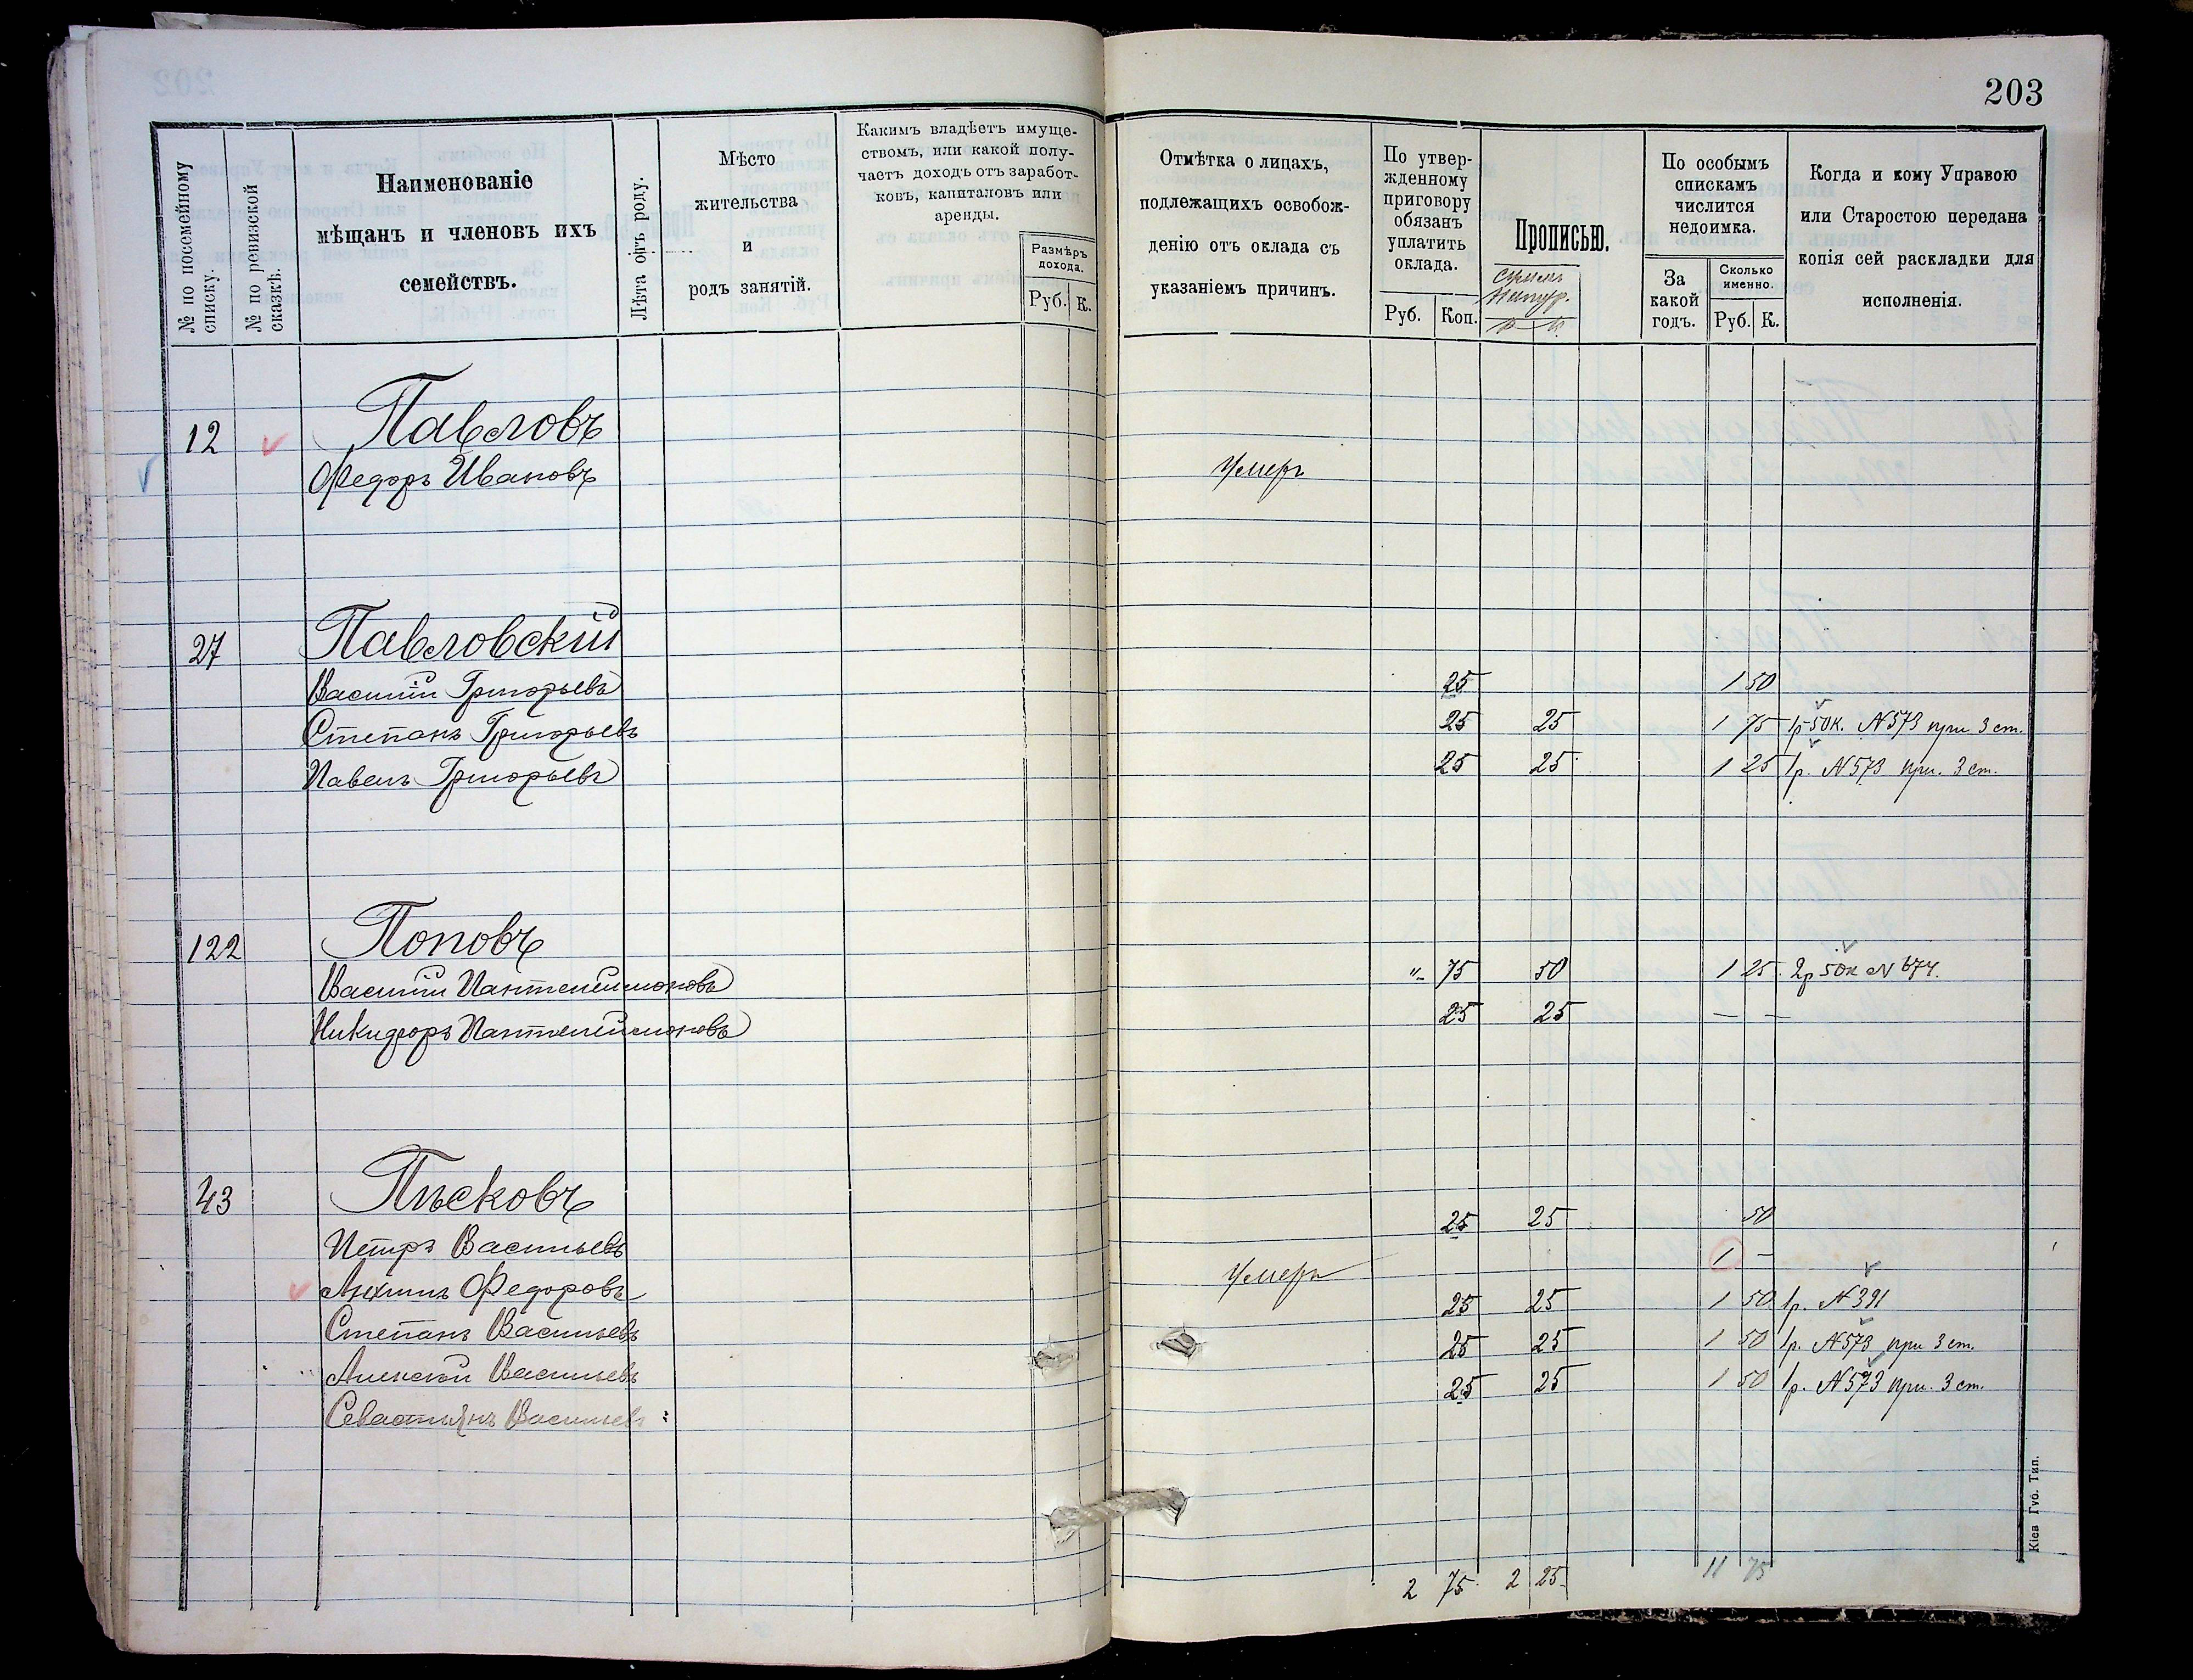 203
№ по посемейному списку.
№ по ревизской сказкѣ.
Наименованіе
мѣщанъ и членовъ ихъ
семействъ.
Лѣта отъ роду.
Мѣсто
жительства
и
родъ занятій.
Какимъ владѣетъ имуще-
ствомъ, или какой полу-
чаетъ доходъ отъ заработ-
ковъ, капиталовъ или
аренды.
Размѣръ
дохода.
Руб. К.
Отмѣтка о лицахъ,
подлежащихъ освобож-
денію отъ оклада съ
указаніемъ причинъ.
По утвер-
жденному
приговору
обязанъ
уплатить
оклада.
Руб. Коп.
Прописью.
р к
По особымъ
спискамъ
числится
недоимка.
За
какой
годъ.
Сколько
именно.
Руб. К.
Когда и кому Управою
или Старостою передана
копія сей раскладки для
исполненія.
12 Павловъ
Федоръ Ивановъ Умеръ
27 Павловскій
Василій Григорьевъ 25 1 50
Степанъ Григорьевъ 25 25 1 75 1р 50к. N573 при 3 ст.
Павелъ Григорьевъ 25 25 1 25 1р. N573 при. 3 ст.
122 Поповъ
Василій Пантелеймоновъ "- 75 50 1 25 2р 50к N 674.
Никифоръ Пантелеймоновъ 25 25 — —
43 Пѣсковъ
Петръ Васильевъ 25 25 50
Антипъ Федоровъ Умеръ 1 -
Степанъ Васильевъ 25 25 1 50 1р. N 391
Алексѣй Васильевъ 25 25 1 50 1р. N573 при 3 ст.
Севастьянъ Васильевъ 25 25 1 50 1р. N573 при. 3 ст.
2 75 2 25 11 75
Кіев Губ. Тип.